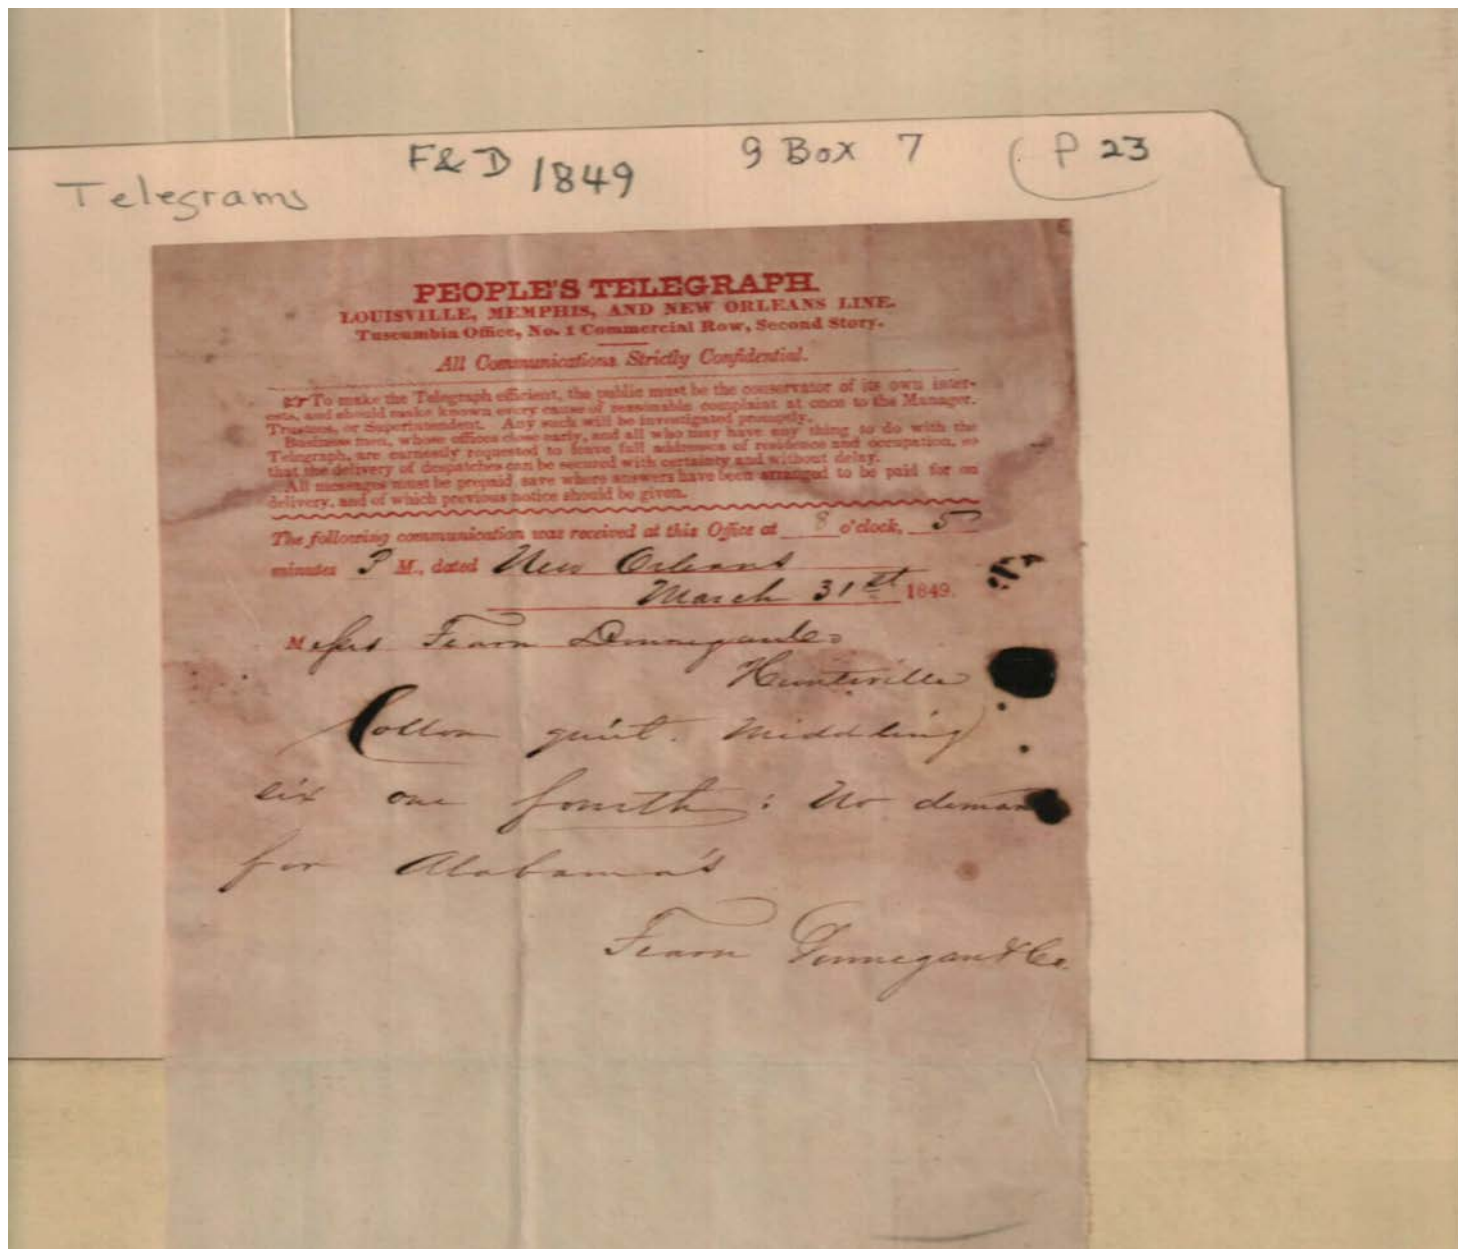 F & D 1849 9 Box 7 P 23
Telegrams
PEOPLE'S TELEGRAPH.
LOUISVILLE, MEMPHIS, AND NEW ORLEANS LINE.
Tuscumbia Office, No. 1 Commercial Row, Second Story.
All Communications Strictly Confidential.
☞ To make the Telegraph efficient, the public must be the conservator of its own inter-
ests, and should make known every cause of reasonable complaint at once to the Manager,
Trustees, or Superintendent. Any such will be investigated promptly.
Business men, whose offices close early, and all who may have any thing to do with the
Telegraph, are earnestly requested to leave full addresses of residence and occupation, so
that the delivery of despatches can be secured with certainty and without delay.
All messages must be prepaid, save where answers have been arranged to be paid for on
delivery, and of which previous notice should be given.
The following communication was received at this Office at 8 o'clock, 5
minutes P M., dated New Orleans
March 31st 1849.
Messrs Fearn Donnegan & Co
Huntsville
Cotton quiet. Middling
six one fourth : No deman
for Alabama's
Fearn Donnegan & Co.